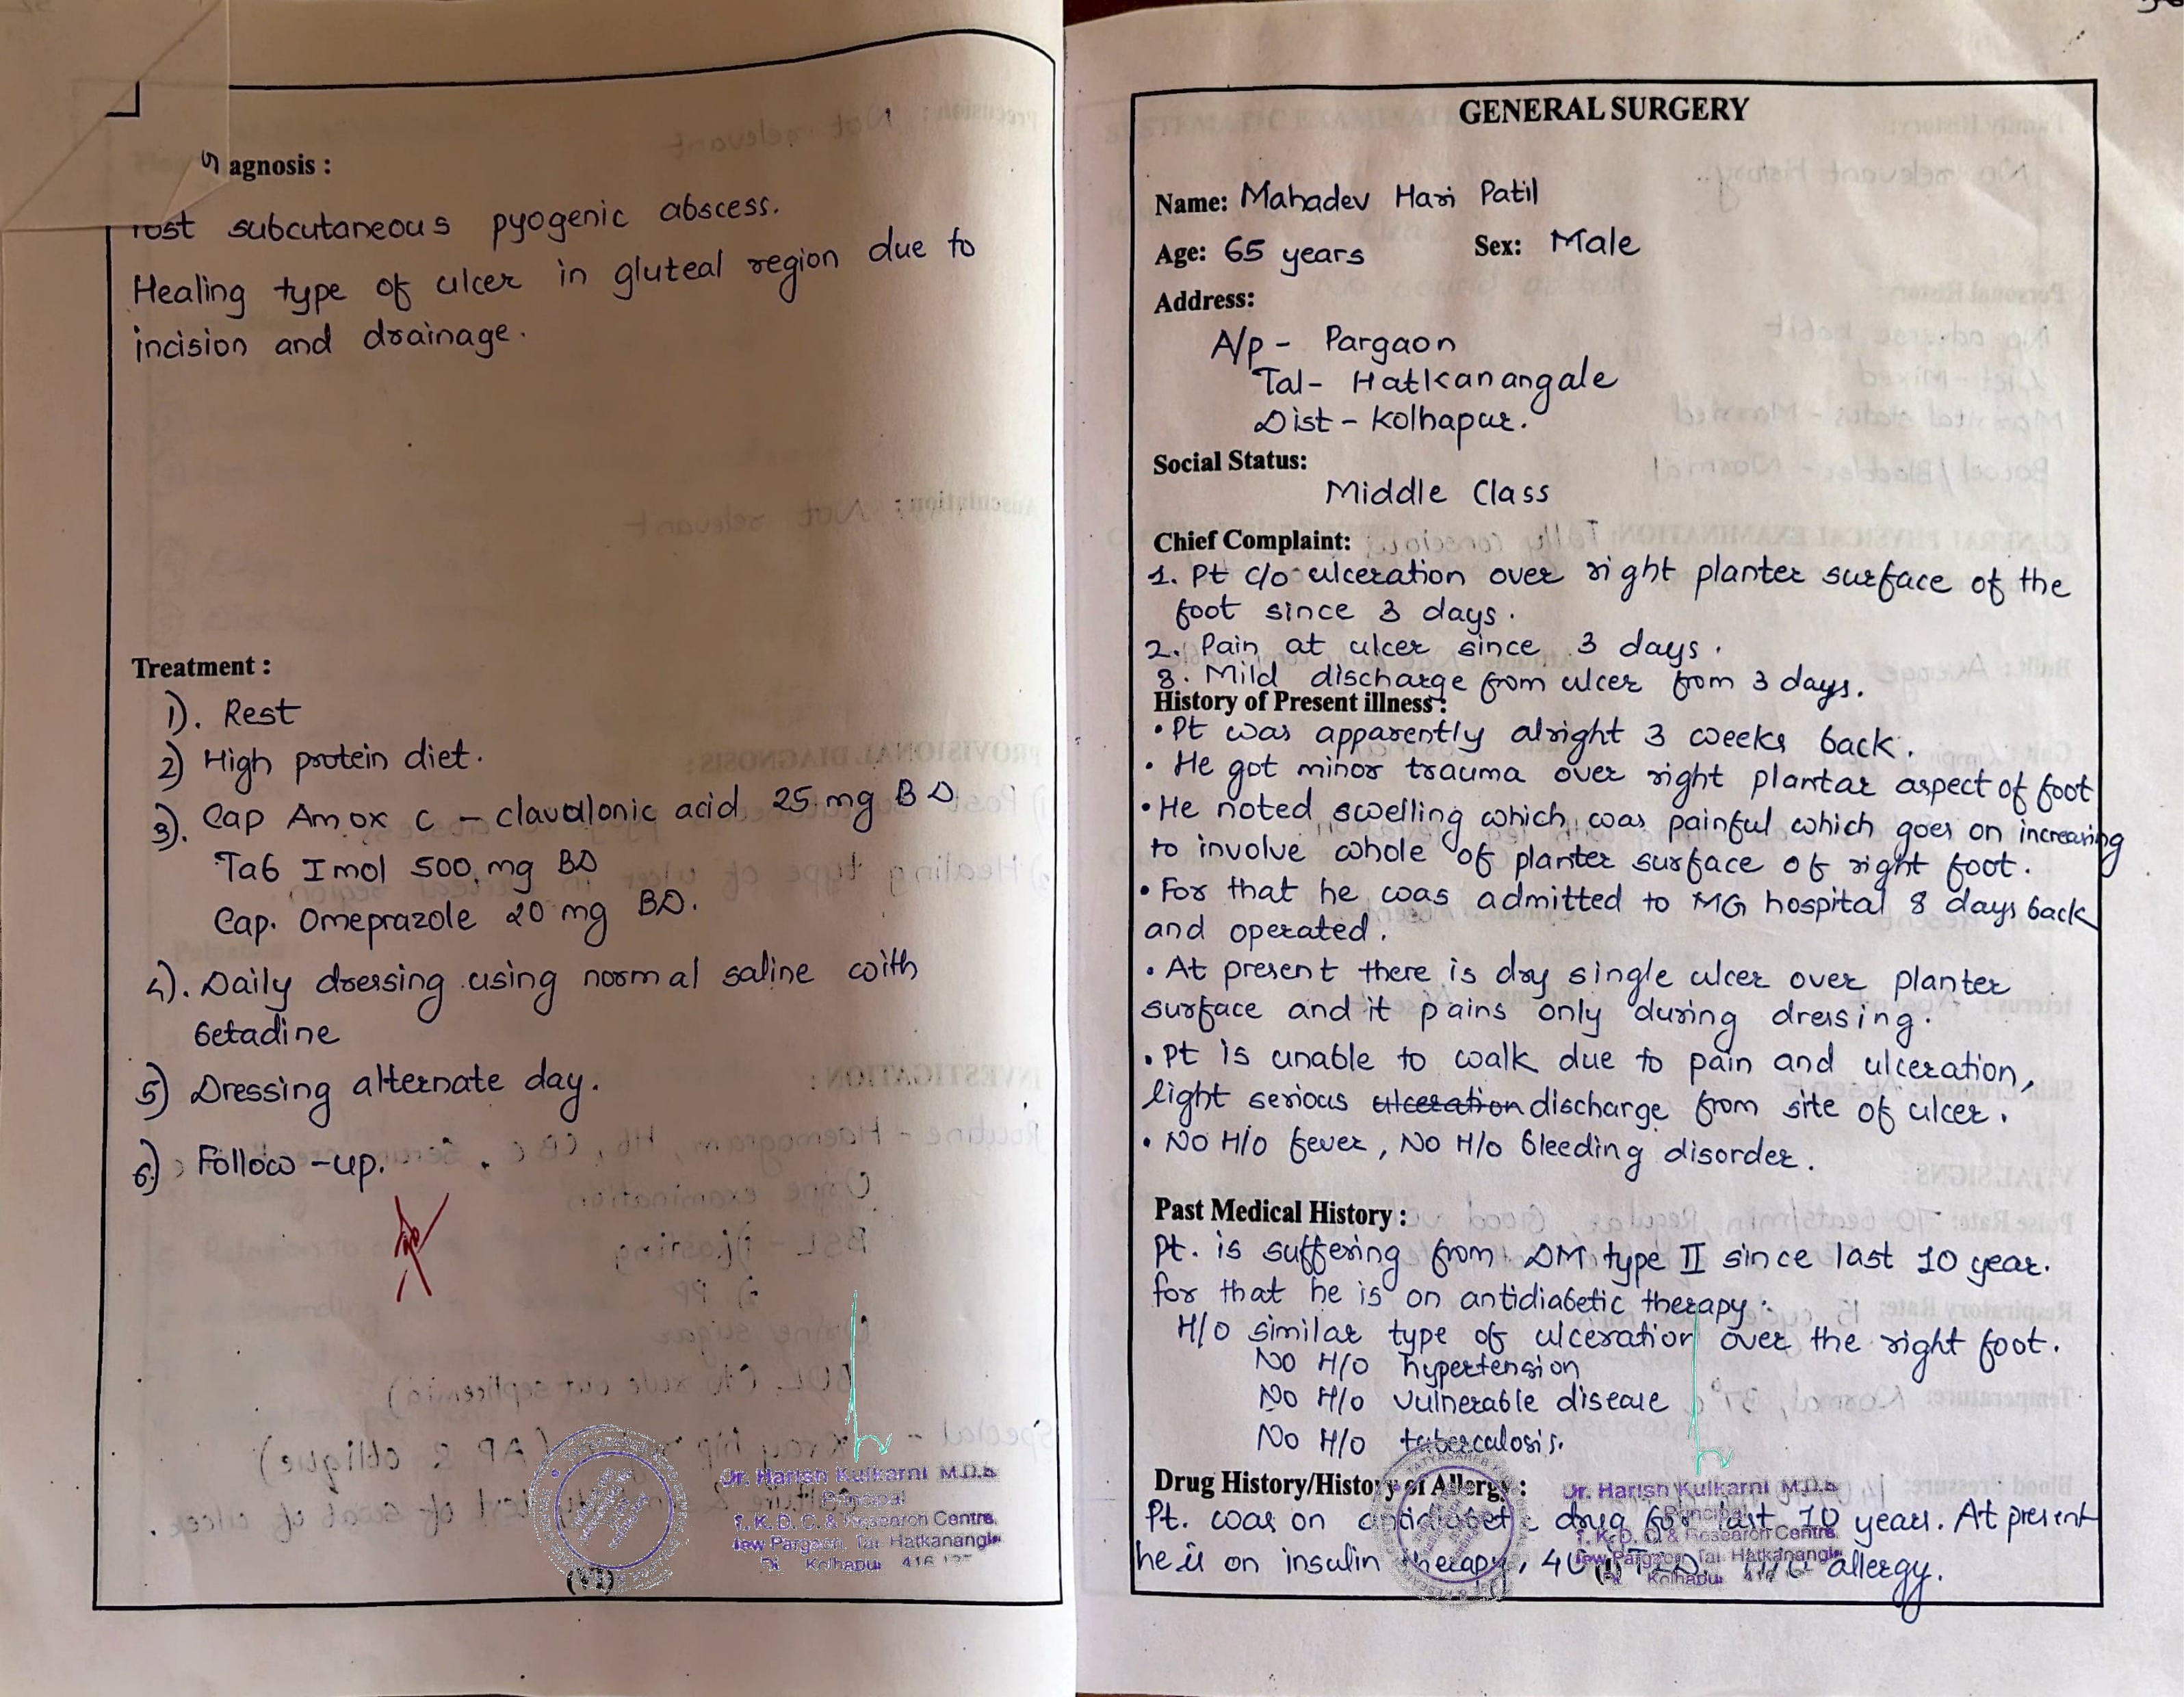 agnosis :
Post subcutaneous pyogenic abscess.
Healing type of ulcer in gluteal region due to
incision and drainage.
Treatment :
1). Rest
2) High protein diet.
3). Cap Amox C - clavulonic acid 25 mg BD
Tab Imol 500 mg BD
Cap. Omeprazole 20 mg BD.
4). Daily dressing using normal saline with
betadine
5) Dressing alternate day.
6.) Follow-up.
Dr. Harish Kulkarni M.D.S
Principal
T. K. D. C. & Research Centre,
New Pargaon, Tal. Hatkanangle
Di Kolhapur 416 137
GENERAL SURGERY
Name: Mahadev Hari Patil
Age: 65 years Sex: Male
Address:
A/p - Pargaon
Tal- Hatkanangale
Dist - Kolhapur.
Social Status:
Middle Class
Chief Complaint:
1. Pt c/o ulceration over right planter surface of the
foot since 3 days.
2. Pain at ulcer since 3 days.
3. Mild discharge from ulcer from 3 days.
History of Present illness :
• Pt was apparently alright 3 weeks back.
• He got minor trauma over right plantar aspect of foot
• He noted swelling which was painful which goes on increasing
to involve whole of planter surface of right foot.
• For that he was admitted to MG hospital 8 days back
and operated.
• At present there is dry single ulcer over planter
surface and it pains only during dressing.
• Pt is unable to walk due to pain and ulceration,
light serious ulceration discharge from site of ulcer.
• No H/o fever, No H/o bleeding disorder.
Past Medical History :
Pt. is suffering from DM type II since last 10 year.
for that he is on antidiabetic therapy.
H/o similar type of ulceration over the right foot.
No H/o hypertension
No H/o vulnerable disease
No H/o tuberculosis.
Drug History/History of Allergy :
Pt. was on antidiabetic drug for last 10 years. At present
he is on insulin therapy, allergy.
Dr. Harish Kulkarni M.D.S
Principal
T. K. D. C. & Research Centre
New Pargaon, Tal. Hatkanangle
Kolhapur